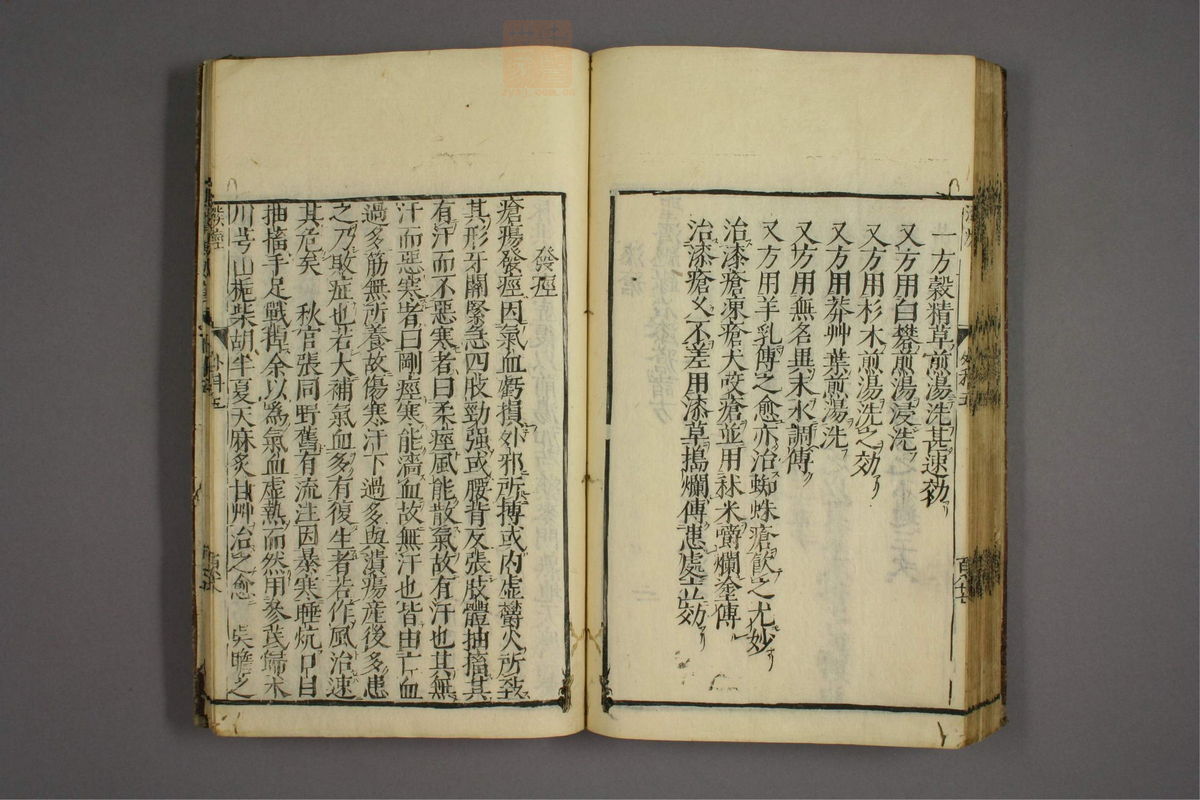 一方穀精草煎湯洗其速効
又方用白礬煎湯浸洗
又方用杉木煎湯洗之効
又方用莽艸葉煎湯洗
又坊用無名異末水調傳
又方用羊乳傳之愈亦治蜘蛛瘡飲之尤妙
治漆瘡凍瘡犬咬瘡並用秫米嚼爛塗傳
治漆瘡久不差用漆草搗爛傳患處立効
發痙
瘡瘍發痙因氣血虧損外邪所搏或内虚鬱火所致
其形牙關緊急四肢勁強或腰背反張肢體抽搐其
有汗而不惡寒者曰柔痙風能散氣故有汗也其無
汗而惡寒者曰剛痙寒能濇血故無汗也皆由亡血
過多筋無所養故傷寒汗下過多與潰瘍産後多患
之乃敗症也若大補氣血多有復生者若作風治速
其危矣 秋官張同野舊有流注因暴寒睡炕口目
抽搐手足戰掉余以爲氣血虚熱而然用參芪歸术
川芎山梔柴胡半夏天麻炙甘艸治之愈 吳瞻之
發痙